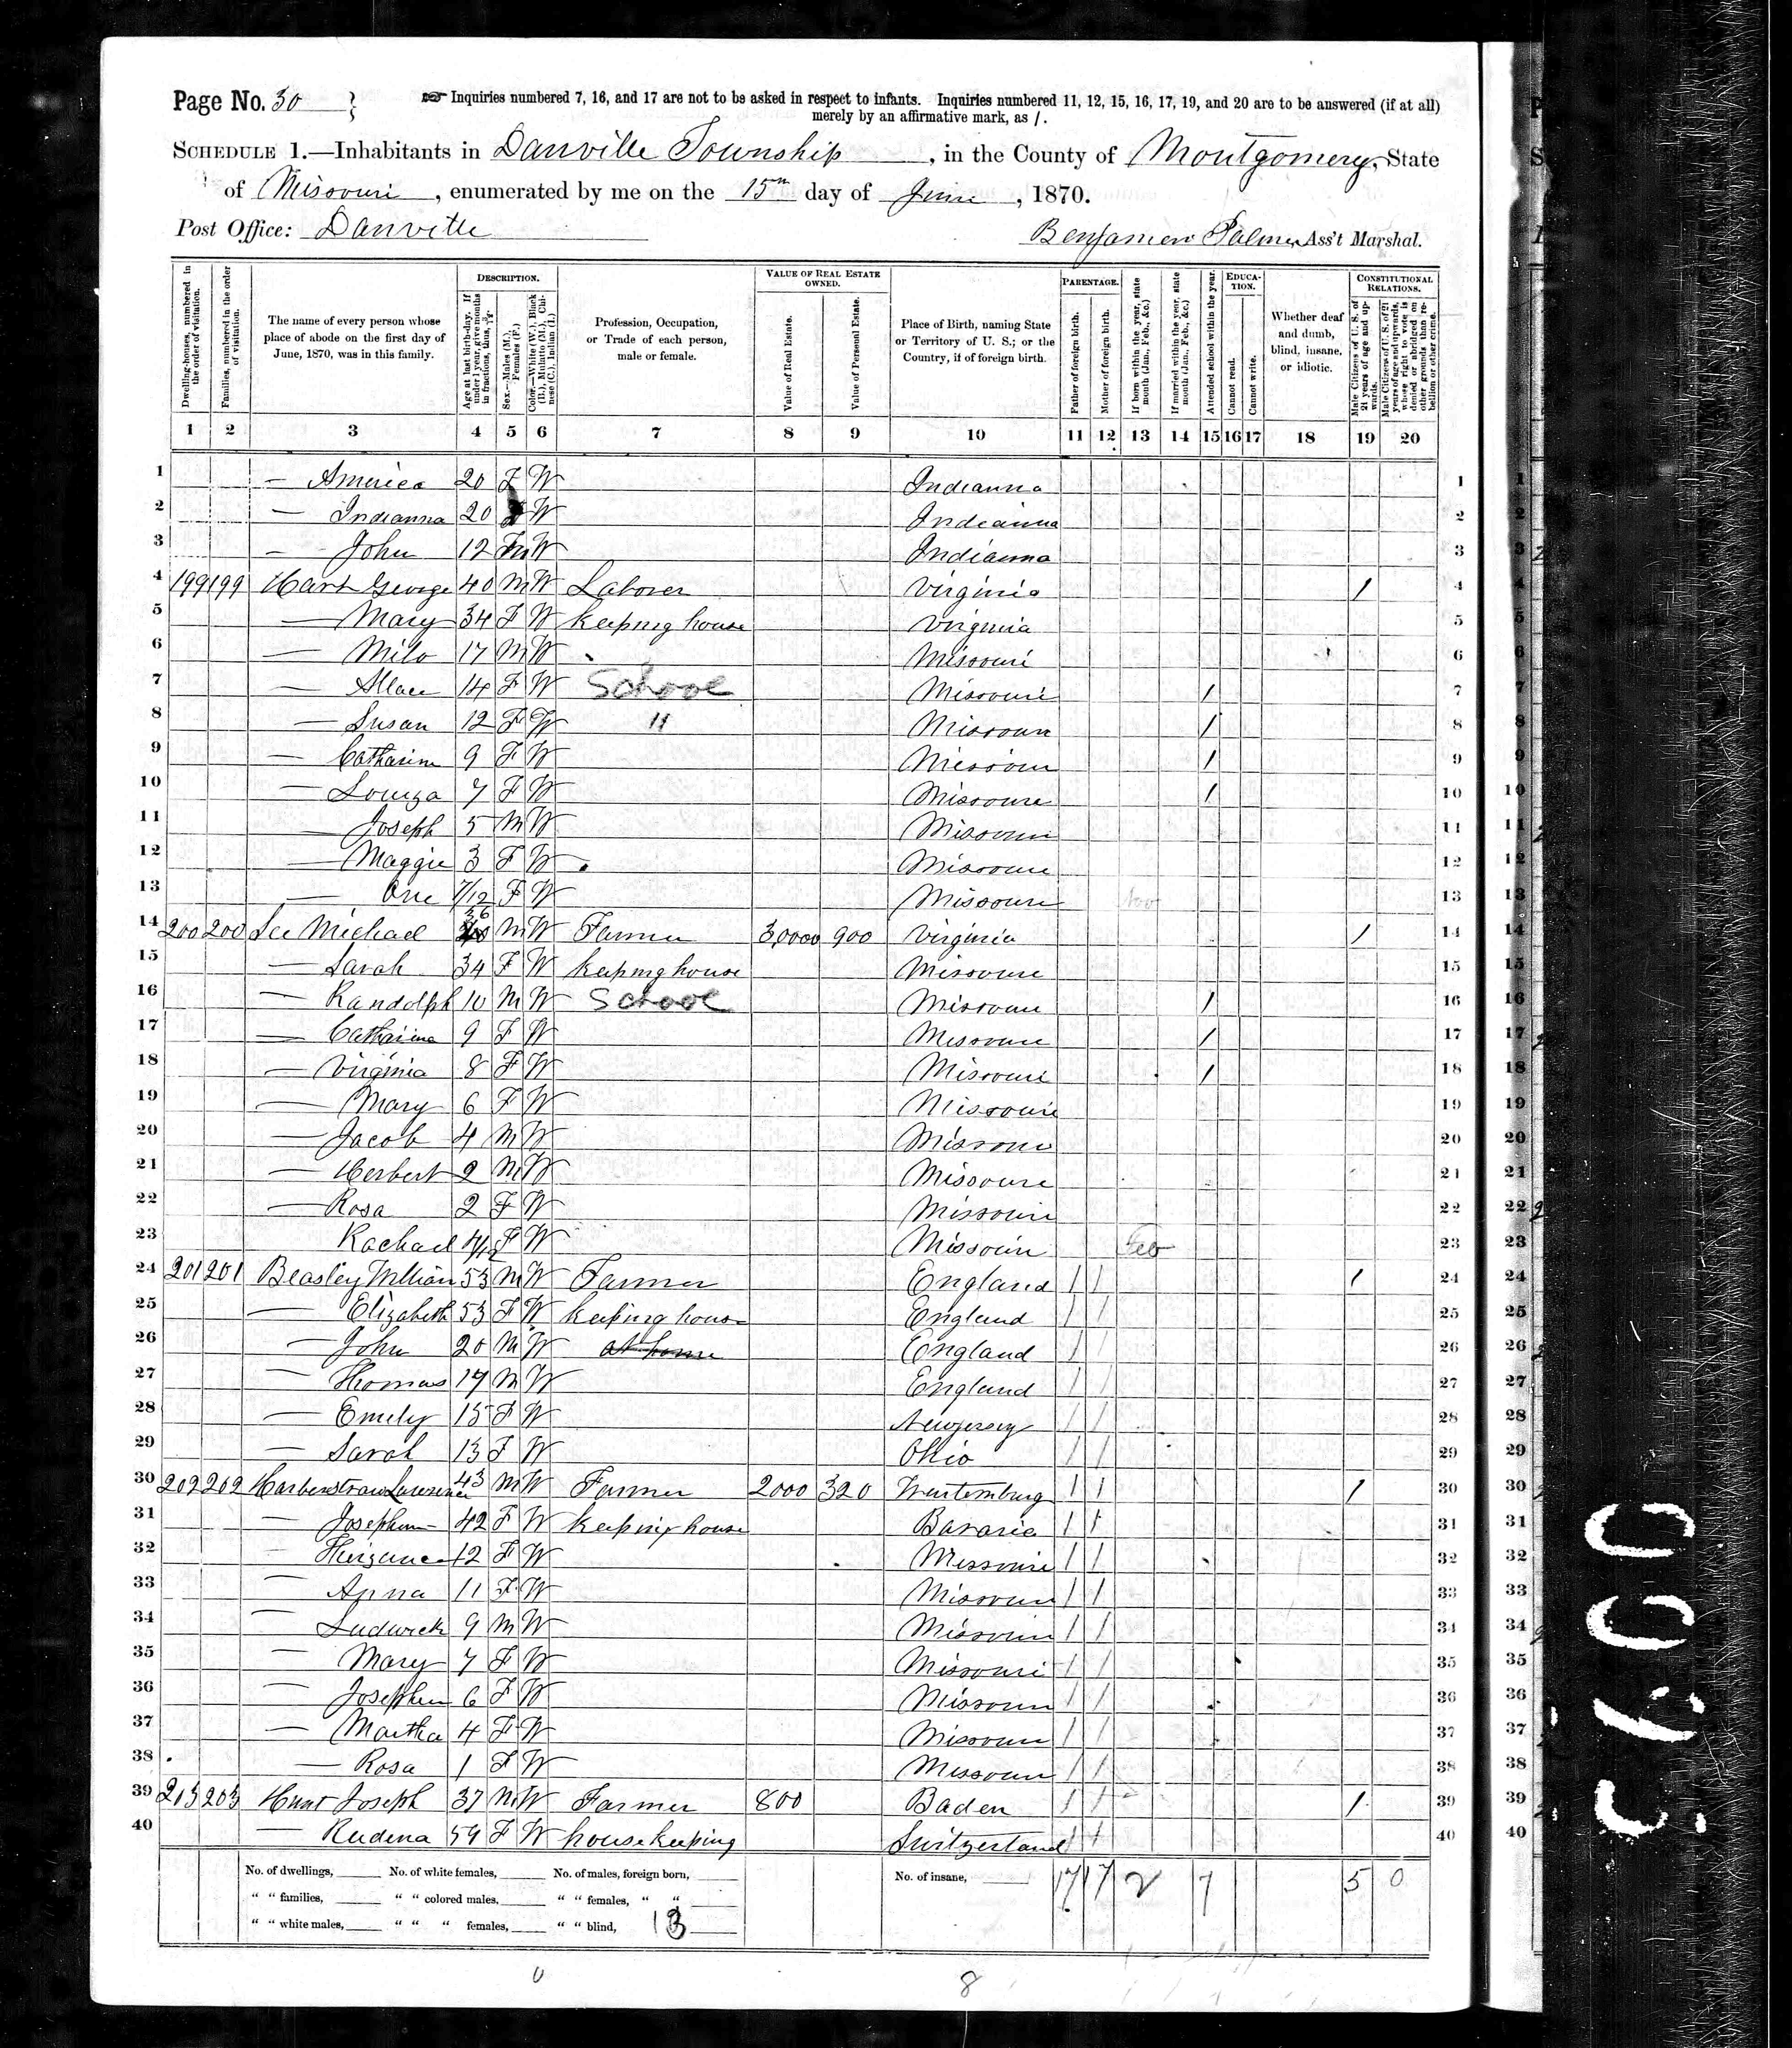 Page No. 30
☞ Inquiries numbered 7, 16, and 17 are not to be asked in respect to infants. Inquiries numbered 11, 12, 15, 16, 17, 19, and 20 are to be answered (if at all)
merely by an affirmative mark, as /.
SCHEDULE 1.—Inhabitants in Danville Township, in the County of Montgomery, State
of Missouri, enumerated by me on the 15th day of June, 1870.
Post Office: Danville
Benjamin Palmer Ass't Marshal.
Dwelling-houses, numbered in the order of visitation.
Families, numbered in the order of visitation.
The name of every person whose place of abode on the first day of June, 1870, was in this family.
DESCRIPTION.
Age at last birth-day. If under 1 year, give months in fractions, thus, 3/12.
Sex.—Males (M.), Females (F.)
Color.—White (W.), Black (B.), Mulatto (M.), Chinese (C.), Indian (I.)
Profession, Occupation, or Trade of each person, male or female.
VALUE OF REAL ESTATE OWNED.
Value of Real Estate.
Value of Personal Estate.
Place of Birth, naming State or Territory of U. S.; or the Country, if of foreign birth.
PARENTAGE.
Father of foreign birth.
Mother of foreign birth.
If born within the year, state month (Jan., Feb., &c.)
If married within the year, state month (Jan., Feb., &c.)
Attended school within the year.
EDUCATION.
Cannot read.
Cannot write.
Whether deaf and dumb, blind, insane, or idiotic.
CONSTITUTIONAL RELATIONS.
Male Citizens of U. S. of 21 years of age and upwards.
Male Citizens of U. S. of 21 years of age and upwards, whose right to vote is denied or abridged on other grounds than rebellion or other crime.
1 2 3 4 5 6 7 8 9 10 11 12 13 14 15 16 17 18 19 20
1 — America 20 F W Indianna 1
2 — Indianna 20 F W Indianna 2
3 — John 12 M W Indianna 3
4 199 199 Hart George 40 M W Laborer Virginia / 4
5 — Mary 34 F W Keeping house Virginia 5
6 — Milo 17 M W Missouri 6
7 — Allace 14 F W School Missouri / 7
8 — Susan 12 F W " Missouri / 8
9 — Catharine 9 F W Missouri / 9
10 — Louiza 7 F W Missouri / 10
11 — Joseph 5 M W Missouri 11
12 — Maggie 3 F W Missouri 12
13 — One 7/12 F W Missouri Nov 13
14 200 200 See Michael 36 M W Farmer 3,0000 900 Virginia / 14
15 — Sarah 34 F W Keeping house Missouri 15
16 — Randolph 10 M W School Missouri / 16
17 — Catharine 9 F W Missouri / 17
18 — Virginia 8 F W Missouri / 18
19 — Mary 6 F W Missouri 19
20 — Jacob 4 M W Missouri 20
21 — Herbert 2 M W Missouri 21
22 — Rosa 2 F W Missouri 22
23 Rachael 4/12 F W Missouri Feb 23
24 201 201 Beasley William 53 M W Farmer England / / / 24
25 — Elizabeth 53 F W Keeping house England / / 25
26 — John 20 M W at home England / 26
27 — Thomas 17 M W England / / 27
28 — Emely 15 F W New Jersey / / 28
29 — Sarah 13 F W Ohio / / 29
30 202 202 43 M W Farmer 2000 320 Wurtemburg / / / 30
31 — Josephine 42 F W Keeping house Bavaria / / 31
32 — 12 F W Missouri / / 32
33 — Anna 11 F W Missouri / / 33
34 — Ludwick 9 M W Missouri / / 34
35 — Mary 7 F W Missouri / / 35
36 — Josephen 6 F W Missouri / / 36
37 — Martha 4 F W Missouri / / 37
38 — Rosa 1 F W Missouri / / 38
39 203 203 Hunt Joseph 37 M W Farmer 800 Baden / / / 39
40 — Rudena 59 F W house keeping Switzerland / / 40
No. of dwellings, No. of white females, No. of males, foreign born, No. of insane, 17 17 2 7 5 0
" " families, " " colored males, " " females, " "
" " white males, " " " females, " " blind, 13
8